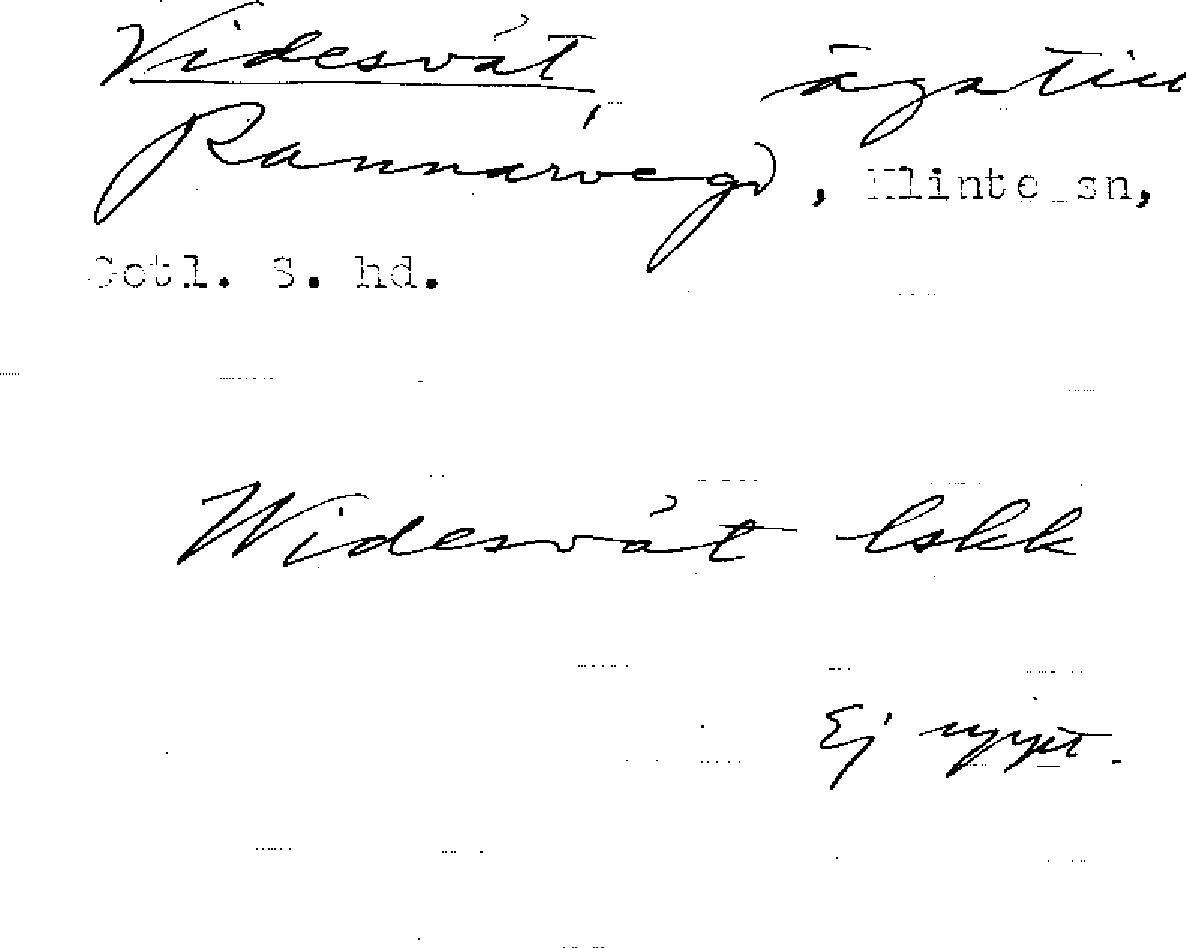 Videsvät ägatill
Rannarvegd, Klinte sn,
Gotl. S. hd.
Widesvät lskk
Ej uppt.